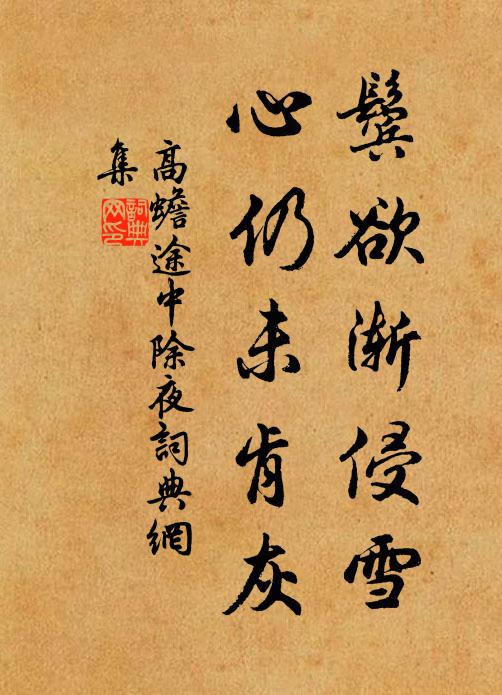 鬓欲渐侵雪
心仍未肯灰
高蟾途中除夜詞典網
集
詞典
网印